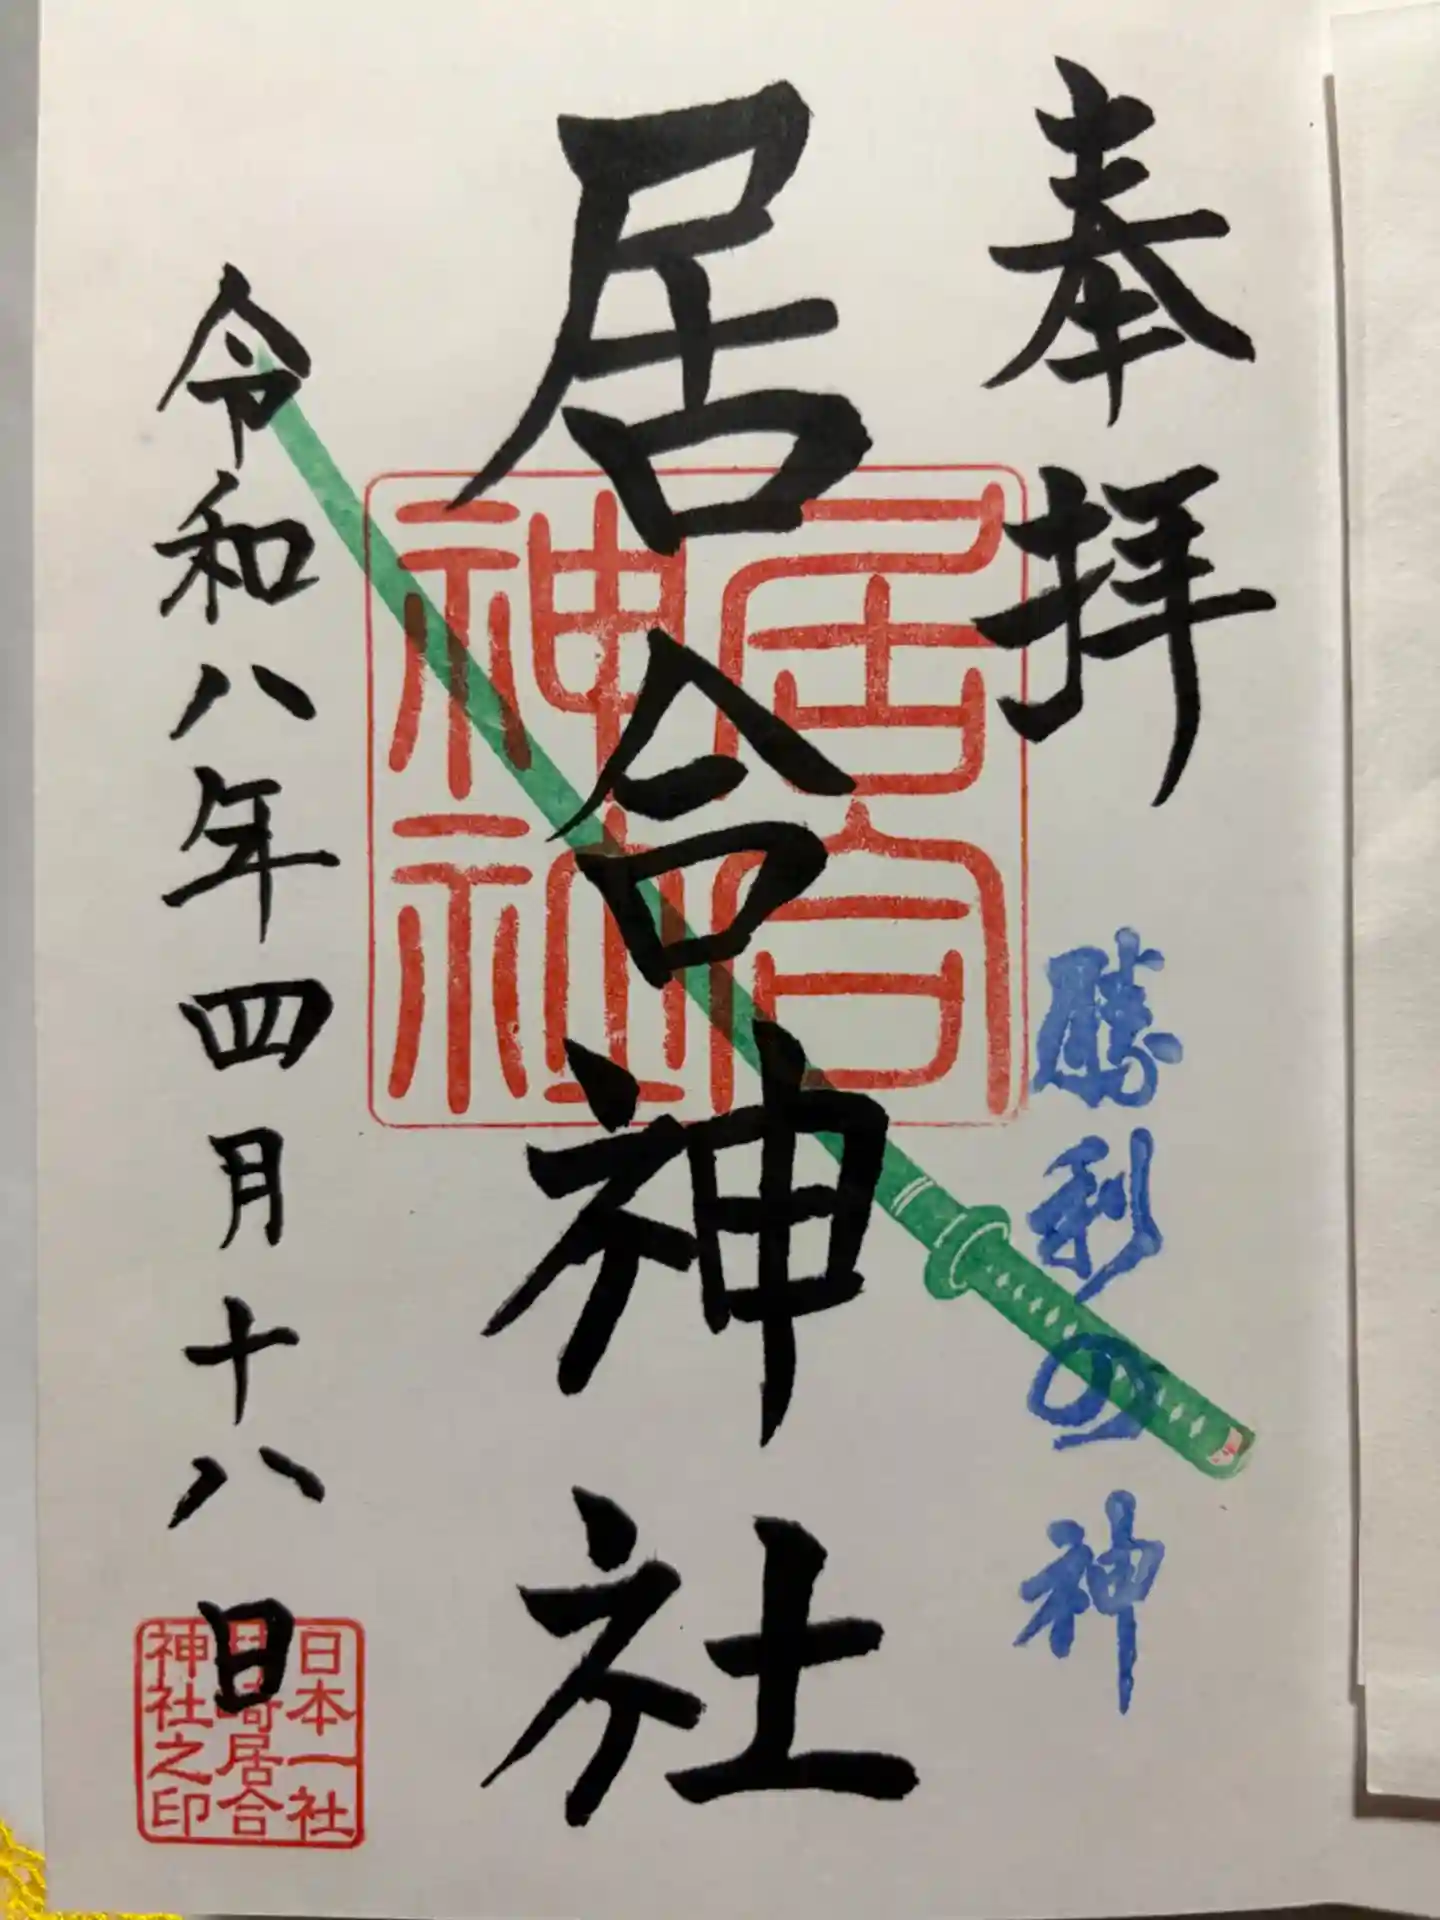 奉拝
勝利の神
居合神社
居合
神社
令和八年四月十八日
日本一社
崎居合
神社之印